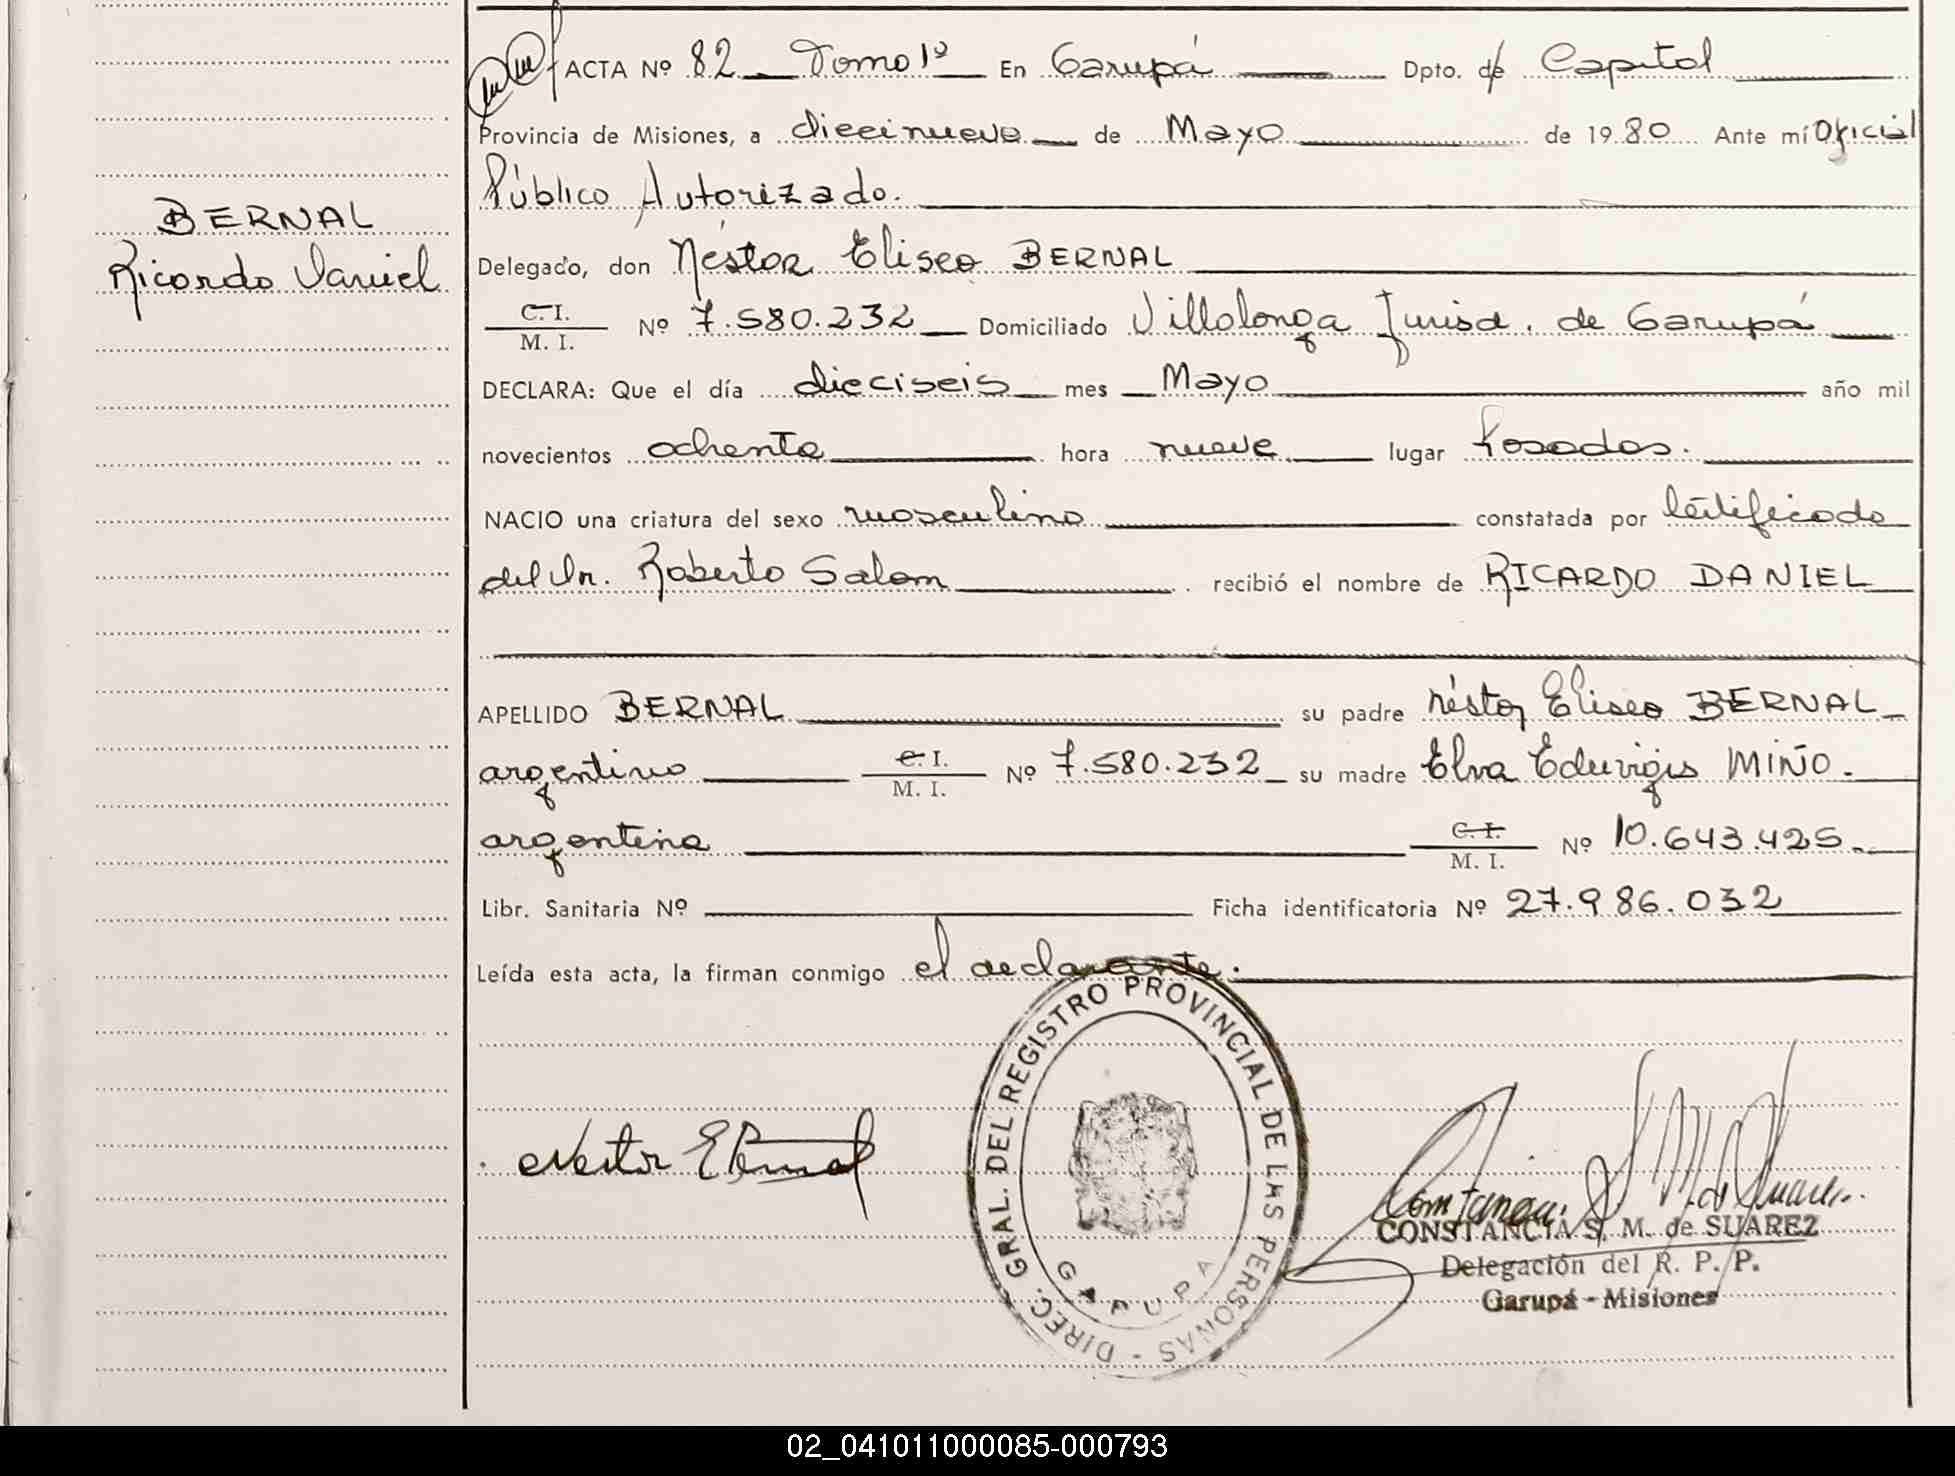 ACTA Nº 82 Tomo 1º En Garupá Dpto. de Capital
Provincia de Misiones, a diecinueve de Mayo de 1980 Ante mí Oficial
Público Autorizado.
BERNAL
Ricardo Daniel
Delegado, don Néstor Eliseo BERNAL
C. I.
M. I. Nº 7.580.232 Domiciliado Villalonga Jurisd. de Garupá
DECLARA: Que el día dieciseis mes Mayo año mil
novecientos ochenta hora nueve lugar Posadas.
NACIO una criatura del sexo masculino constatada por Certificado
del Dr. Roberto Salom recibió el nombre de RICARDO DANIEL
APELLIDO BERNAL su padre Néstor Eliseo BERNAL
argentino C. I. M. I. Nº 7.580.232 su madre Elva Eduvigis MIÑO.
argentina C. I. M. I. Nº 10.643.425.
Libr. Sanitaria Nº Ficha identificatoria Nº 27.986.032
Leída esta acta, la firman conmigo el declarante.
DIREC. GRAL. DEL REGISTRO PROVINCIAL DE LAS PERSONAS -
GARUPA
Nestor E Bernal
Constancia S. M. de Suarez
CONSTANCIA S. M. de SUAREZ
Delegación del R. P. P.
Garupá - Misiones
02_041011000085-000793